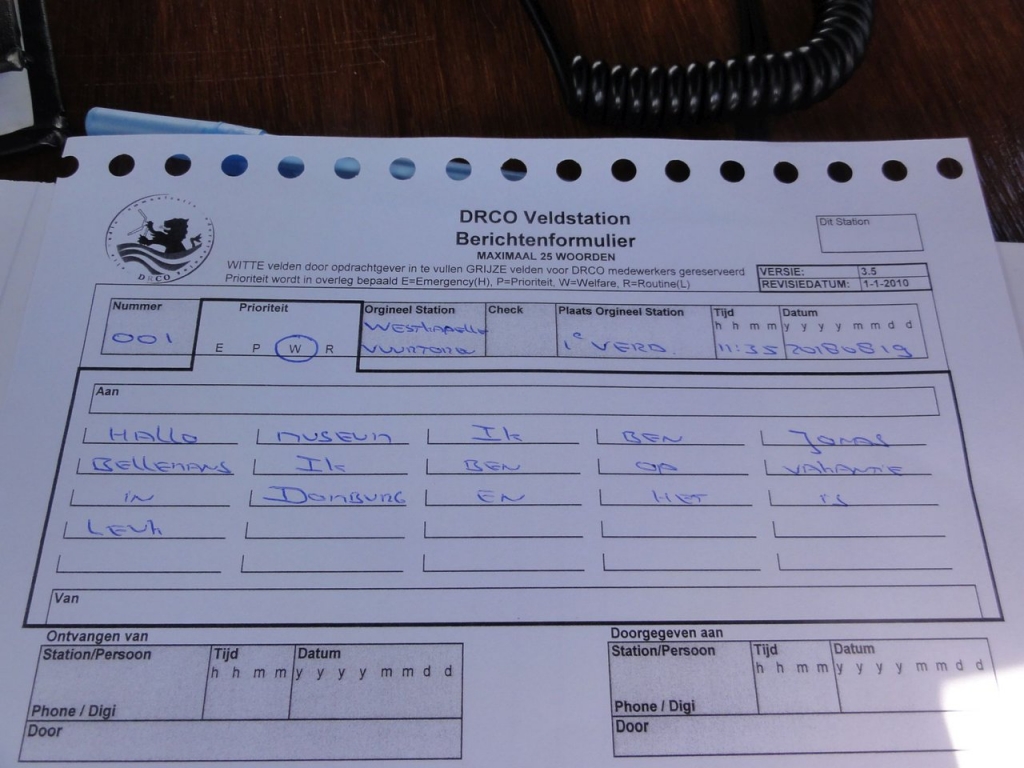 DRCO Veldstation
Berichtenformulier
MAXIMAAL 25 WOORDEN
Dit Station
DRCO
WITTE velden door opdrachtgever in te vullen GRIJZE velden voor DRCO medewerkers gereserveerd
Prioriteit wordt in overleg bepaald E=Emergency(H), P=Prioriteit, W=Welfare, R=Routine(L)
VERSIE: 3.5
REVISIEDATUM: 1-1-2010
Nummer Prioriteit Orgineel Station Check Plaats Orgineel Station Tijd Datum
h h m m y y y y m m d d
001 E P W R WESTKAPELLE VUURTOREN 1e VERD. 11:35 20180819
Aan
HALLO MUSEUM IK BEN JONAS
BELLEMANS IK BEN OP VAKANTIE
IN DOMBURG EN HET IS
LEUK
Van
Ontvangen van Doorgegeven aan
Station/Persoon Tijd Datum Station/Persoon Tijd Datum
h h m m y y y y m m d d h h m m y y y y m m d d
Phone / Digi Phone / Digi
Door Door